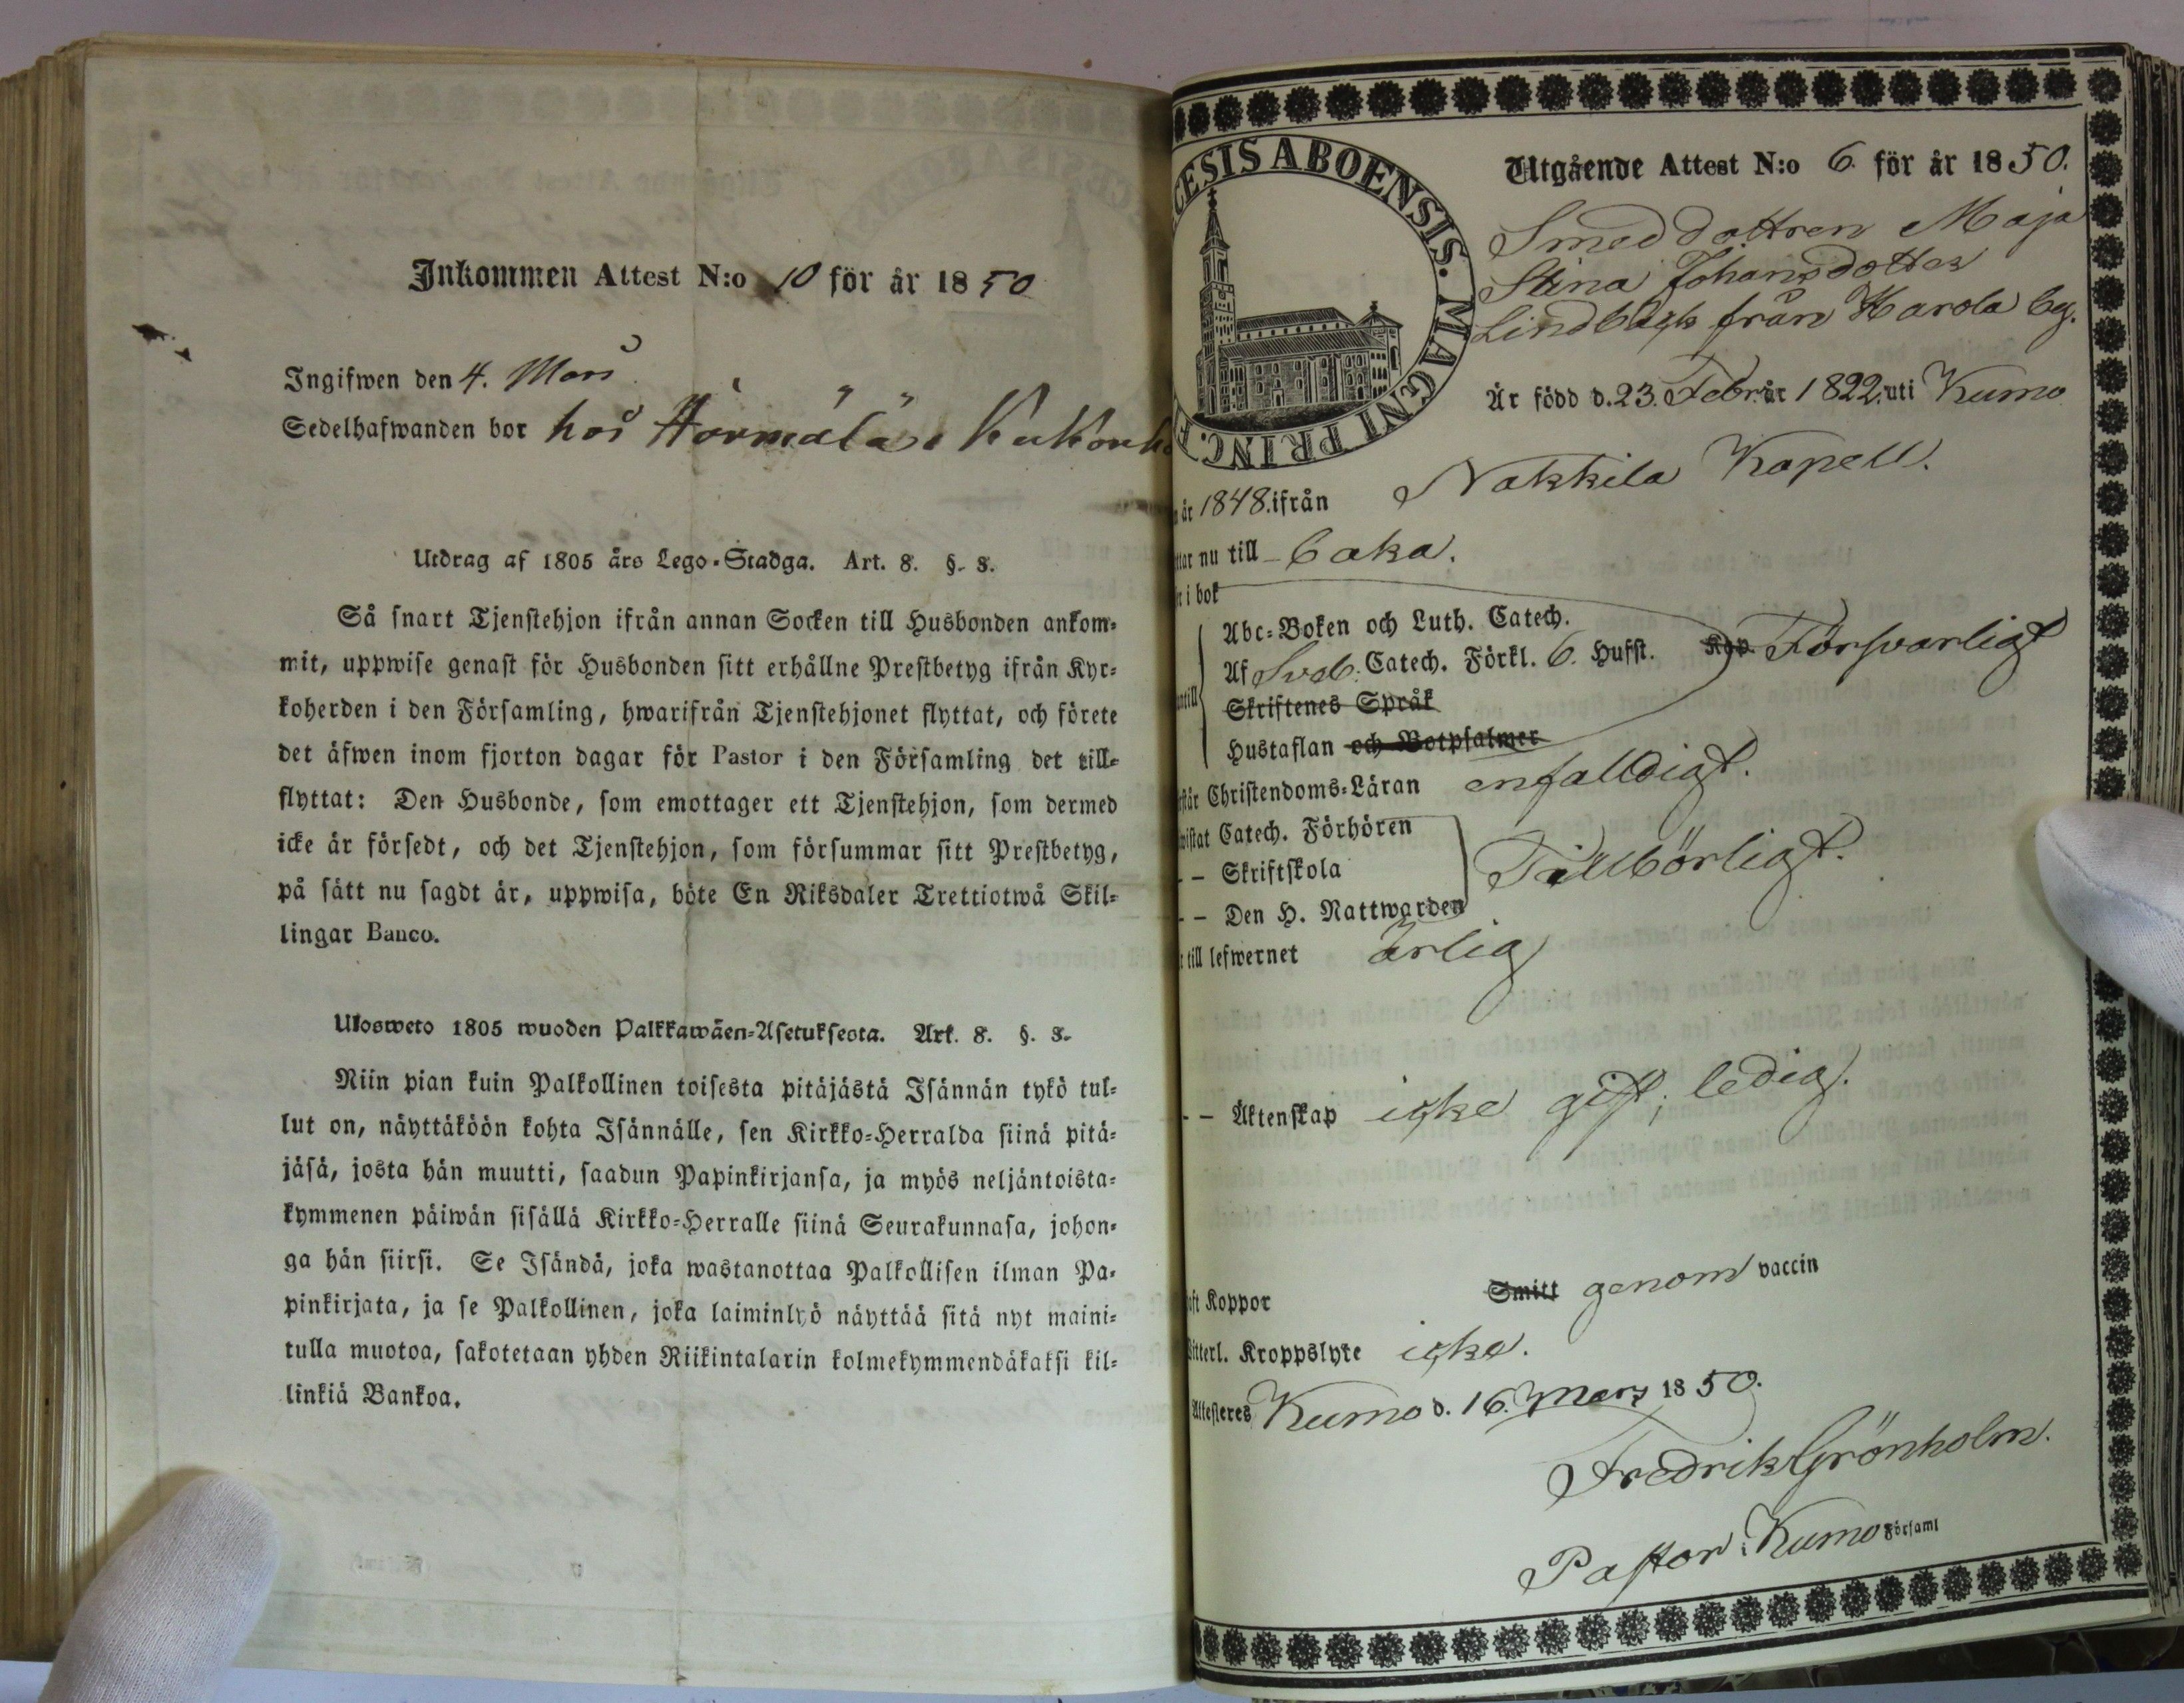 Inkommen Attest N:o 10 för år 1850
Ingifwen den 4. Mars
Sedelhafwanden bor hos
Utdrag af 1805 års Lego-Stadga. Art. 8. §. 8.
Så snart Tjenstehjon ifrån annan Socken till Husbonden ankom-
mit, uppwise genast för Husbonden sitt erhållne Prestbetyg ifrån Kyr-
koherden i den Församling, hwarifrån Tjenstehjonet flyttat, och förete
det äfwen inom fjorton dagar för Pastor i den Församling det till-
flyttat: Den Husbonde, som emottager ett Tjenstehjon, som dermed
icke är försedt, och det Tjenstehjon, som försummar sitt Prestbetyg,
på sätt nu sagdt är, uppwisa, böte En Riksdaler Trettiotwå Skil-
lingar Banco.
Ulosweto 1805 wuoden Palkkawäen-Asetuksesta. Art. 8. §. 8.
Niin pian kuin Palkollinen toisesta pitäjästä Isännän tykö tul-
lut on, näyttäköön kohta Isännälle, sen Kirkko-Herralda siinä pitä-
jäsä, josta hän muutti, saadun Papinkirjansa, ja myös neljäntoista-
kymmenen päiwän sisällä Kirkko-Herralle siinä Seurakunnasa, johon-
ga hän siirsi. Se Isändä, joka wastanottaa Palkollisen ilman Pa-
pinkirjata, ja se Palkollinen, joka laiminlyö näyttää sitä nyt maini-
tulla muotoa, sakotetaan yhden Riikintalarin kolmekymmendäkaksi kil-
linkiä Bankoa.
CESIS ABOENSIS. MAGNI PRINC. F
Utgående Attest N:o 6. för år 1850.
Smeddottren Maja
Stina Johansdotter
från Harola by.
Är född d. 23. Febr. år 1822. uti Kumo
år 1848. ifrån Nakkila Kapell.
ttar nu till baka.
i bok
Abc-Boken och Luth. Catech.
Af Sveb. Catech. Förkl. 6. Hufst. Försvarligt
Skriftenes Språk
Hustaflan och Botpsalmer
står Christendoms-Läran enfalldigt.
wistat Catech. Förhören
- - Skriftskola Tillbörligt.
- - Den H. Nattwarden
till lefwernet ärlig
- - Äktenskap icke gift; ledig.
aft Koppor Smitt genom vaccin
Witterl. Kroppslyte icke.
Attesteres Kumo d. 16. Mars 1850.
Fredrik Grönholm.
Pastor i Kumo Församl